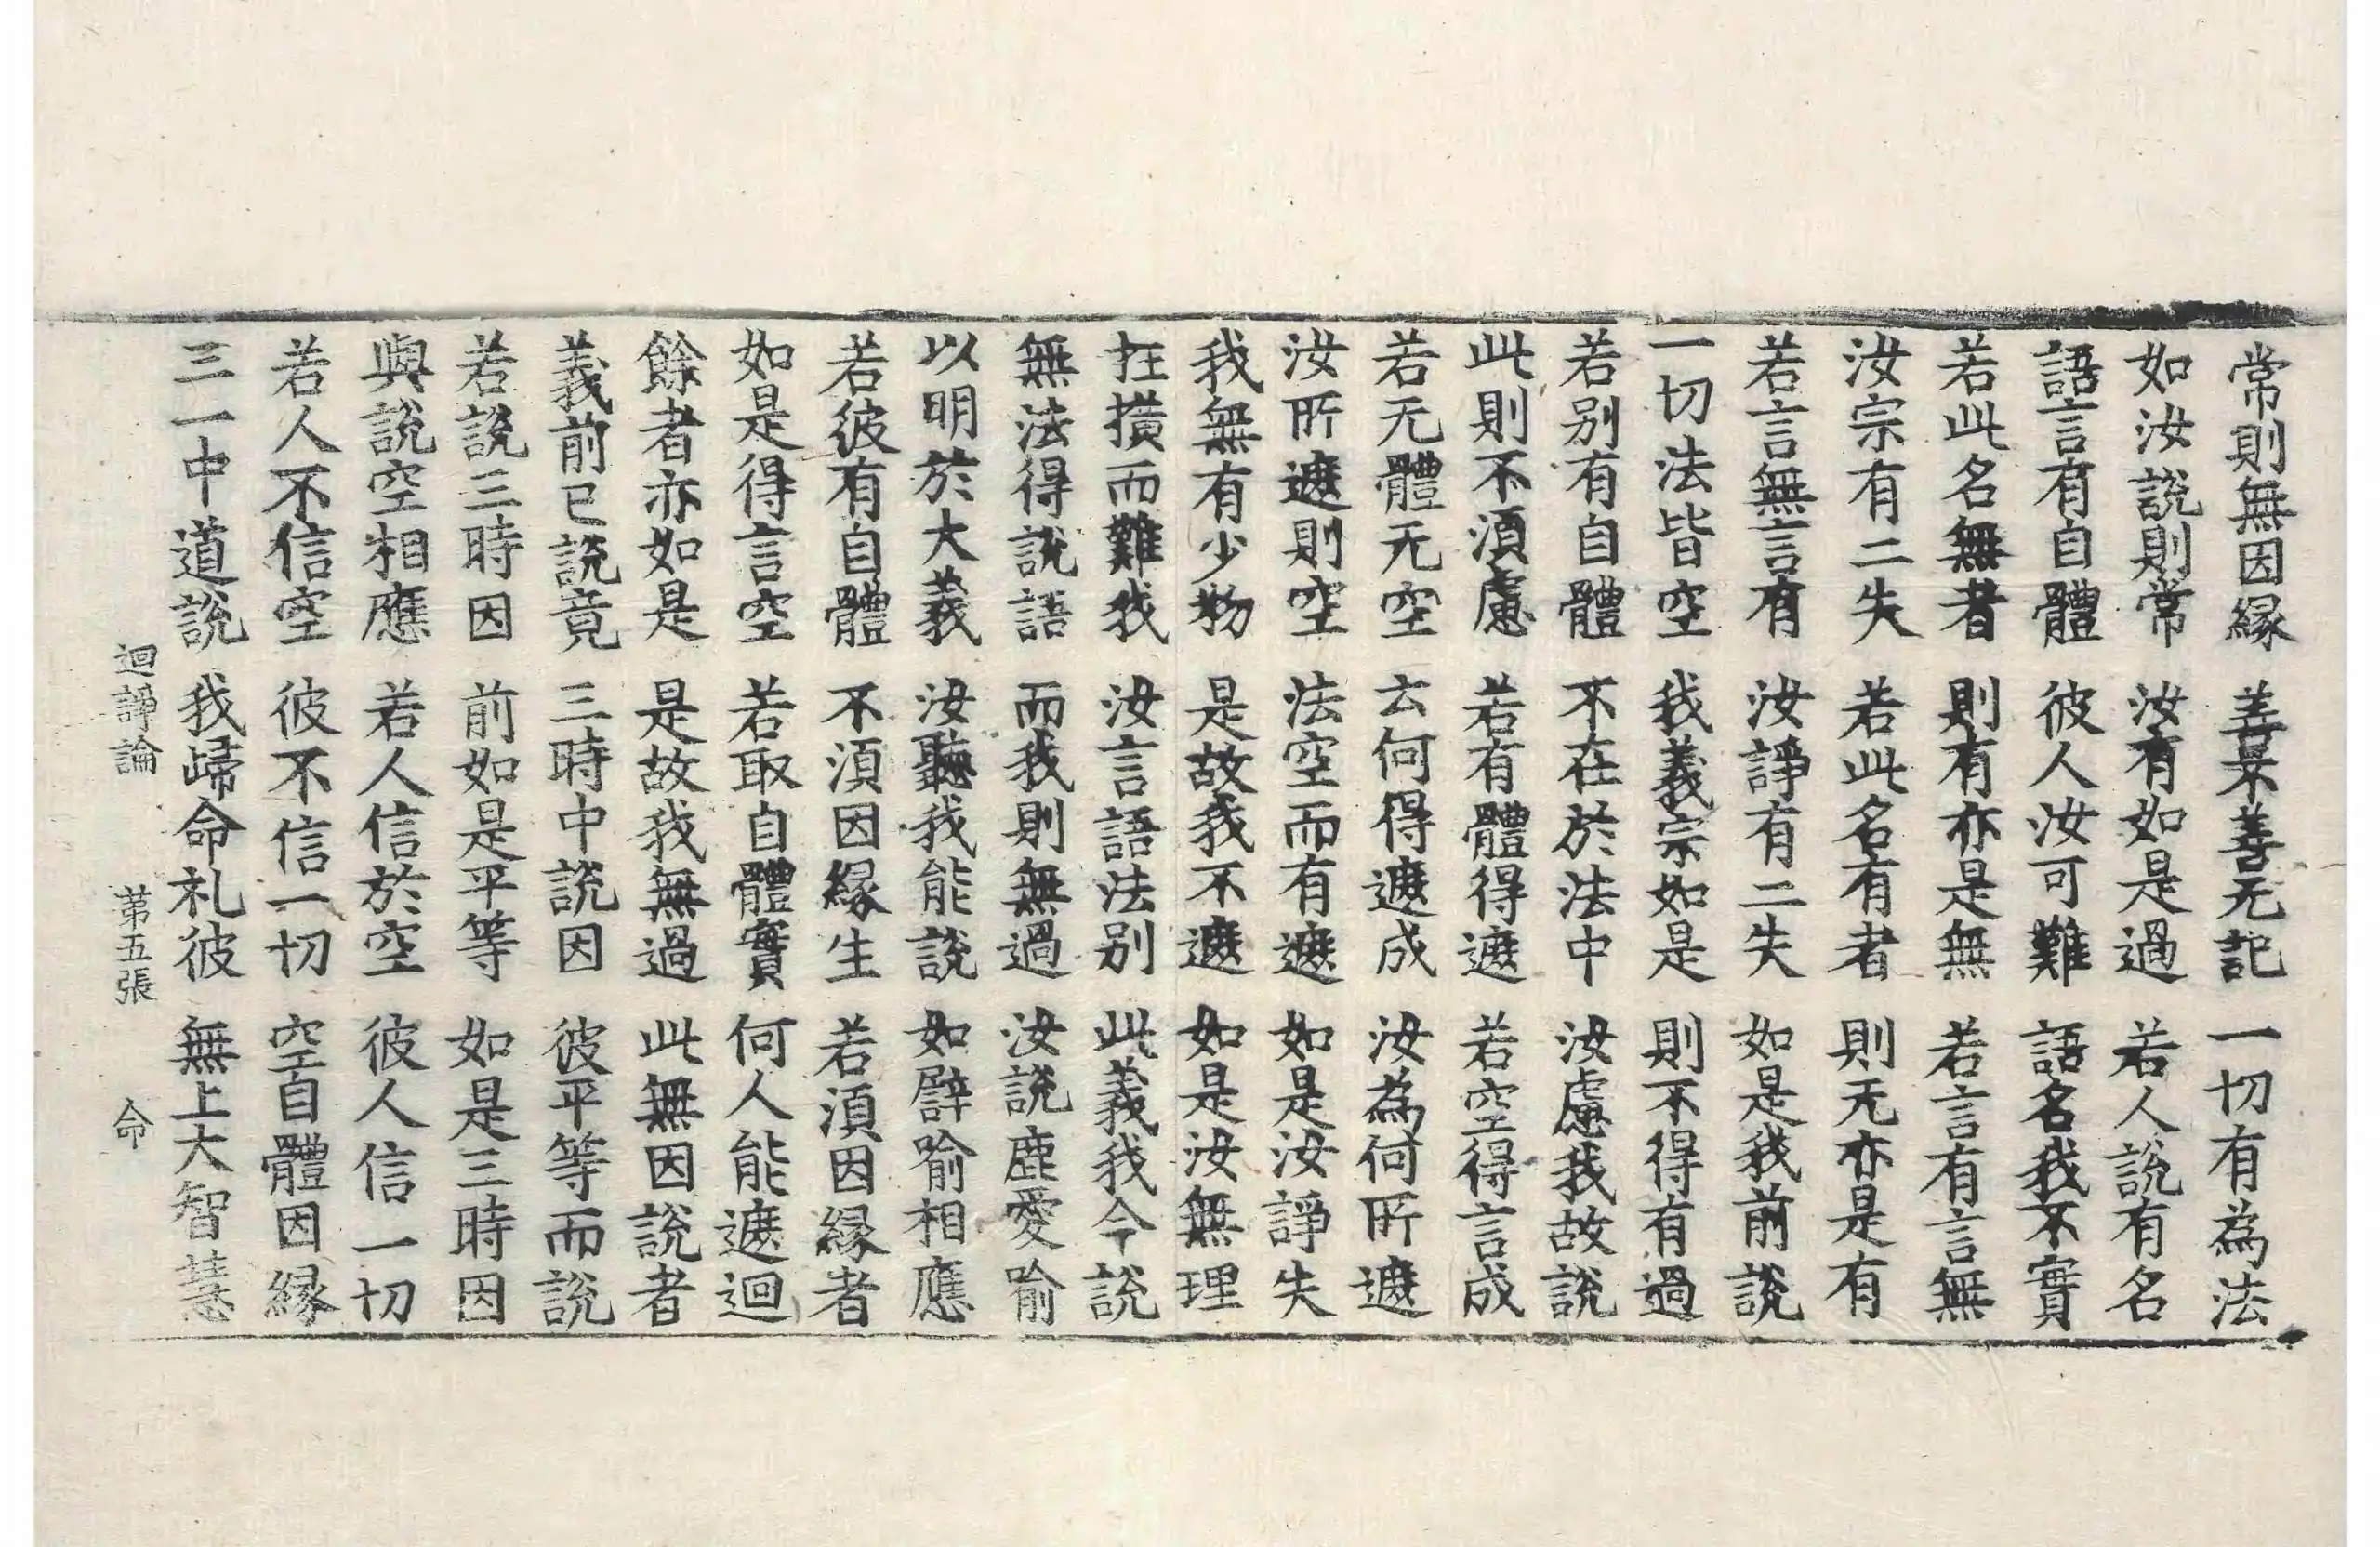 常則無因緣 善不善无記 一切有為法
如汝説則常 汝有如是過 若人説有名
語言有自體 彼人汝可難 語名我不實
若此名無者 則有亦是無 若言有言無
汝宗有二失 若此名有者 則无亦是有
若言無言有 汝諍有二失 如是我前説
一切法皆空 我義宗如是 則不得有過
若别有自體 不在於法中 汝慮我故説
此則不湏慮 若有體得遮 若空得言成
若无體无空 云何得遮成 汝為何所遮
汝所遮則空 法空而有遮 如是汝諍失
我無有少物 是故我不遮 如是汝無理
抂攅而難我 汝言語法别 此義我今説
無法得説語 而我則無過 汝説鹿愛喻
以明於大義 汝聽我能説 如譬喻相應
若彼有自體 不湏因緣生 若湏因緣者
如是得言空 若取自體實 何人能遮迴
餘者亦如是 是故我無過 此無因説者
義前已説竟 三時中説因 彼平等而説
若説三時因 前如是平等 如是三時因
與説空相應 若人信於空 彼人信一切
若人不信空 彼不信一切 空自體因緣
三一中道説 我歸命礼彼 無上大智慧
迴諍論 第五張 命